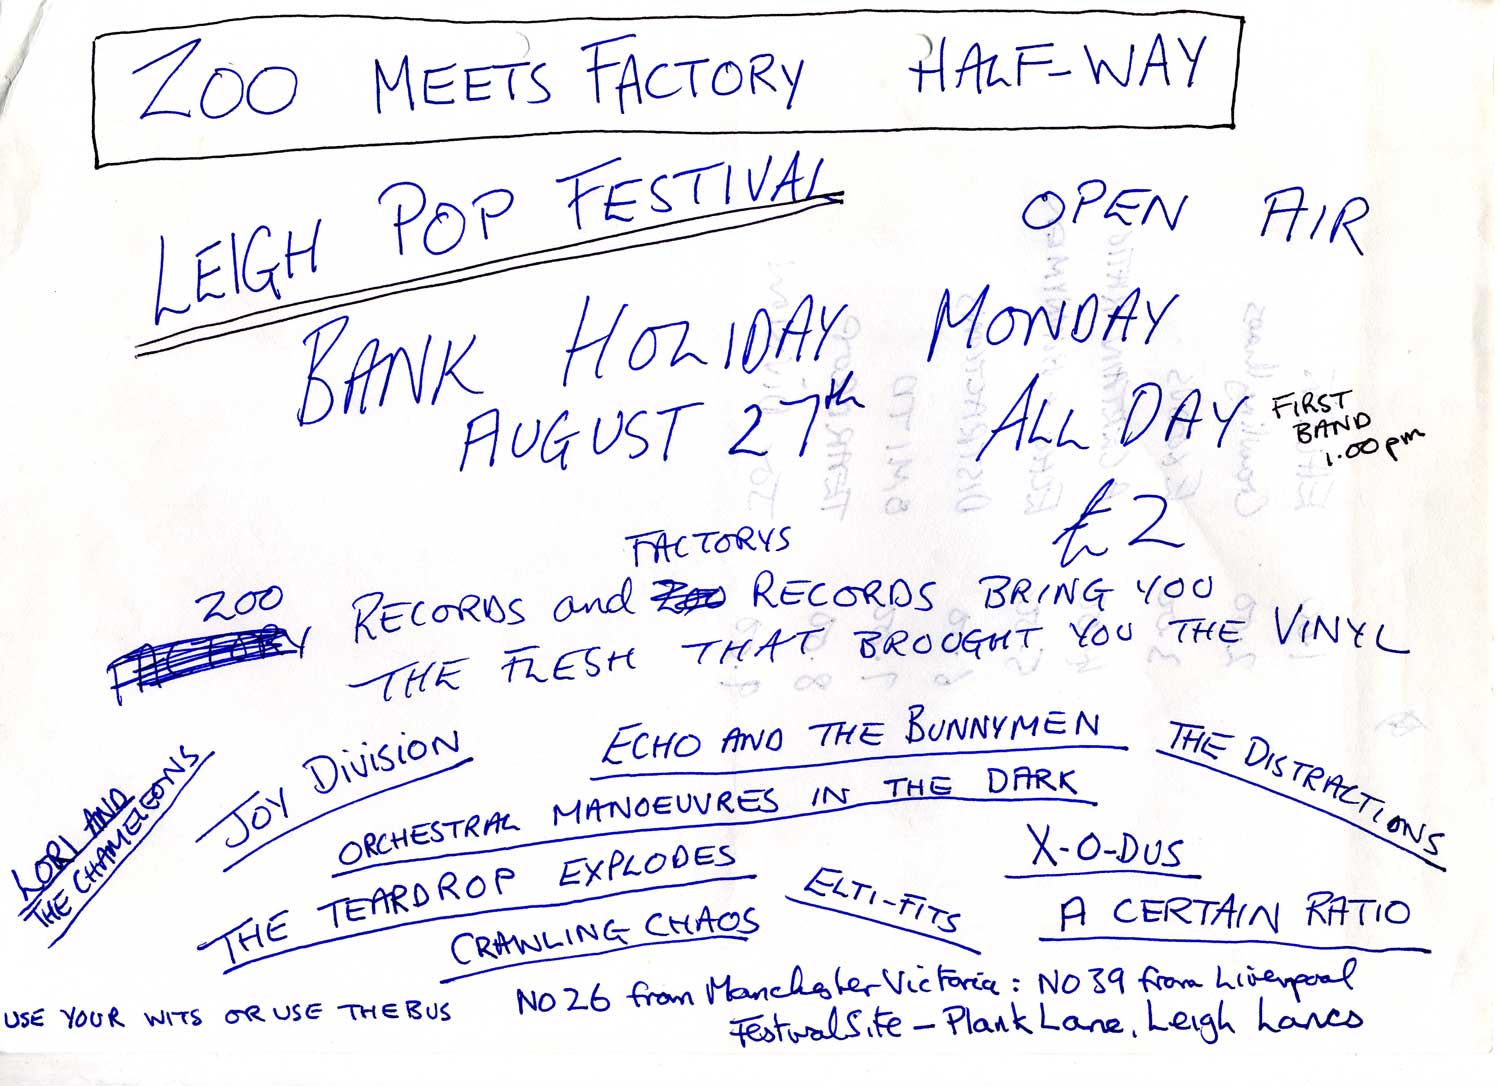 ZOO MEETS FACTORY HALF-WAY
LEIGH POP FESTIVAL
OPEN AIR
BANK HOLIDAY MONDAY
AUGUST 27th ALL DAY
FIRST
BAND
1.00pm
£2
FACTORYS
ZOO RECORDS and ZOO RECORDS BRING YOU
FACTORY THE FLESH THAT BROUGHT YOU THE VINYL
LORI AND
THE CHAMELEONS
JOY DIVISION
ECHO AND THE BUNNYMEN
THE DISTRACTIONS
ORCHESTRAL MANOEUVRES IN THE DARK
X-O-DUS
THE TEARDROP EXPLODES
ELTI-FITS
A CERTAIN RATIO
CRAWLING CHAOS
USE YOUR WITS OR USE THE BUS
NO 26 from Manchester Victoria : NO 39 from Liverpool
Festival Site - Plank Lane, Leigh Lancs